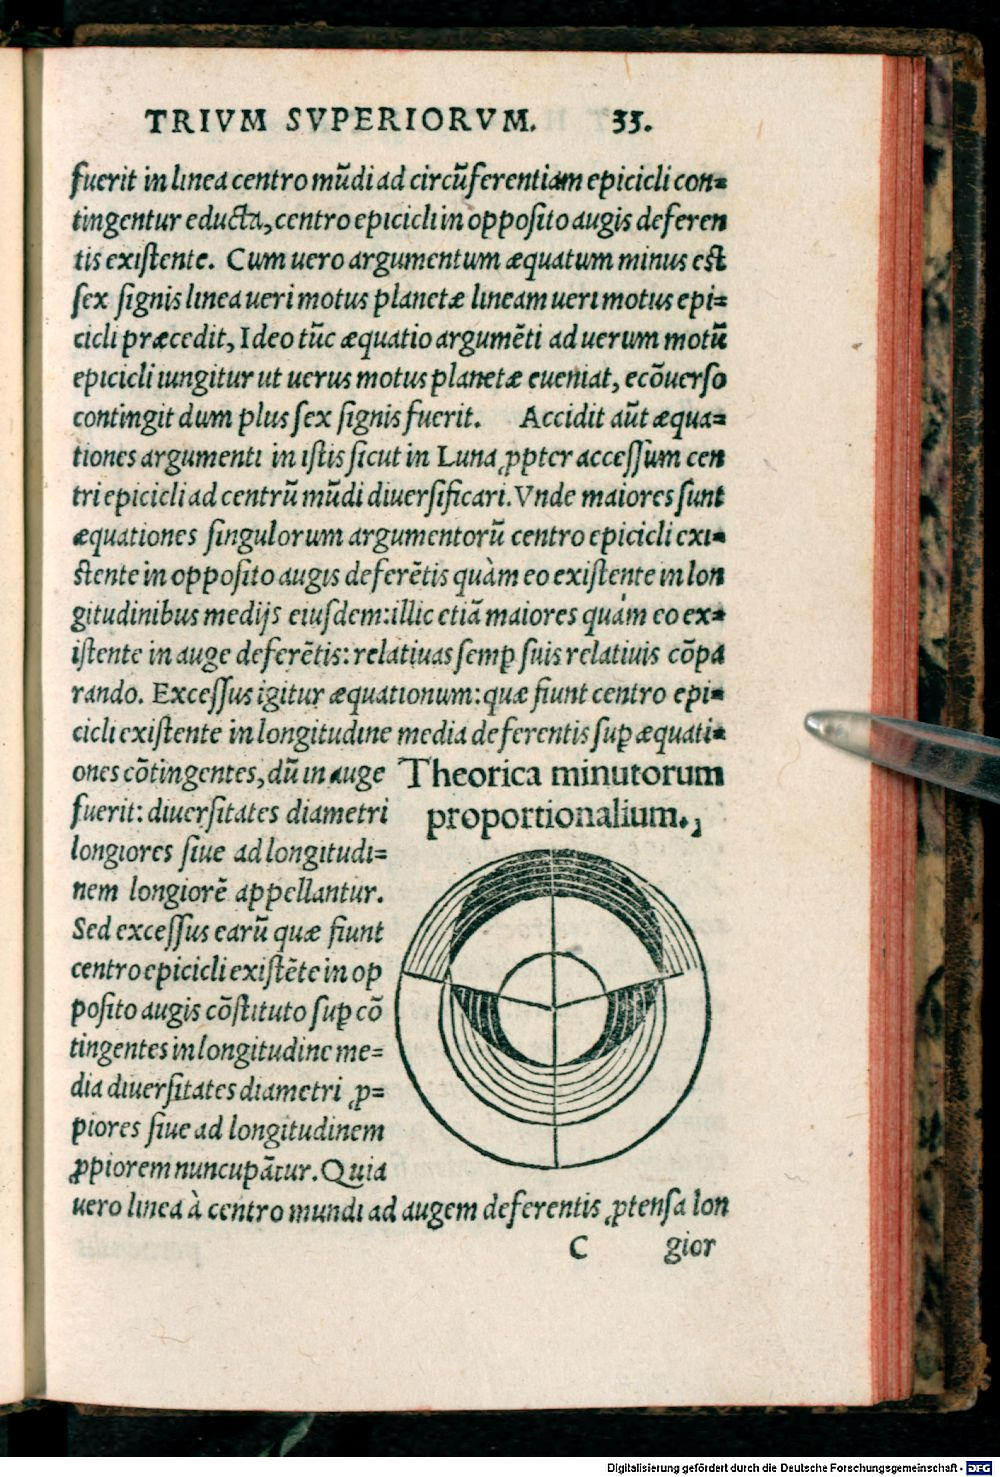 TRIVM SVPERIORVM. 33.
fuerit in linea centro mũdi ad circũferentiam epicicli con=
tingentur educta, centro epicicli in opposito augis deferen
tis existente. Cum uero argumentum æquatum minus est
sex signis linea ueri motus planetæ lineam ueri motus epi=
cicli præcedit, Ideo tũc æquatio argumẽti ad uerum motũ
epicicli iungitur ut uerus motus planetæ eueniat, ecõuerso
contingit dum plus sex signis fuerit. Accidit aũt æqua=
tiones argumenti in istis sicut in Luna ꝓpter accessum cen
tri epicicli ad centrũ mũdi diuersificari. Vnde maiores sunt
æquationes singulorum argumentorũ centro epicicli exi=
stente in opposito augis deferẽtis quàm eo existente in lon
gitudinibus medijs eiusdem: illic etiã maiores quàm eo ex=
istente in auge deferẽtis: relatiuas semꝑ suis relatiuis cõpa
rando. Excessus igitur æquationum: quæ fiunt centro epi=
cicli existente in longitudine media deferentis suꝑ æquati=
ones cõtingentes, dũ in auge
fuerit: diuersitates diametri
longiores siue ad longitudi=
nem longiorẽ appellantur.
Sed excessus earũ quæ fiunt
centro epicicli existẽte in op
posito augis cõstituto suꝑ cõ
tingentes in longitudine me=
dia diuersitates diametri ꝓ=
piores siue ad longitudinem
ꝓpiorem nuncupãtur. Quia
Theorica minutorum
proportionalium.
uero linea à centro mundi ad augem deferentis ꝓtensa lon
C gior
Digitalisierung gefördert durch die Deutsche Forschungsgemeinschaft - DFG